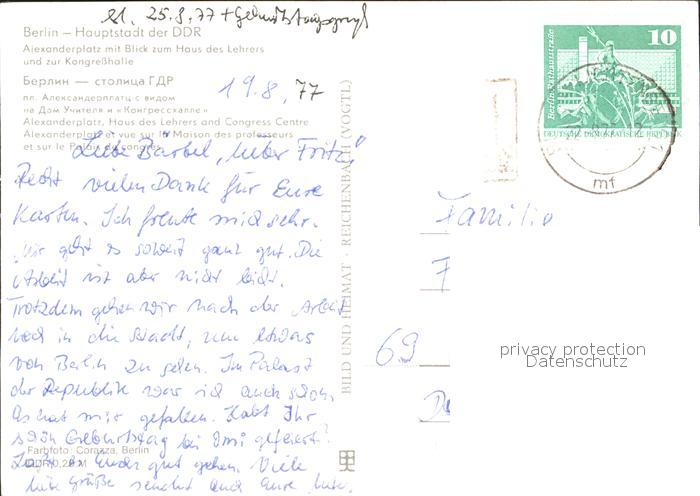 25.8.77 + Geburtstagsgruß
Berlin — Hauptstadt der DDR
Alexanderplatz mit Blick zum Haus des Lehrers
und zur Kongreßhalle
Берлин — столица ГДР
пл. Александерплатц с видом
на Дом Учителя и «Конгрессхалле»
Alexanderplatz, Haus des Lehrers and Congress Centre
Alexanderplatz et vue sur la Maison des professeurs
et sur le Palais du congrès
19.8.77
Liebe Bärbel, lieber Fritz,
Recht vielen Dank für Eure
Karten. Ich freute mich sehr.
Mir geht es soweit ganz gut. Die
Arbeit ist aber nicht leicht.
Trotzdem gehen wir nach der Arbeit
noch in die Stadt, um etwas
von Berlin zu sehen. Im Palast
der Republik war ich auch schon.
Es hat mir gefallen. Habt Ihr
schön Geburtstag bei Omi gefeiert?
Laßt es Euch gut gehen. Viele
liebe Grüße sendet auch Eure
Farbfoto: Corazza, Berlin
BILD UND HEIMAT · REICHENBACH (VOGTL)
10
Berlin, Rathausstraße
DEUTSCHE DEMOKRATISCHE REPUBLIK
mf
Familie
F
69
privacy protection
Datenschutz